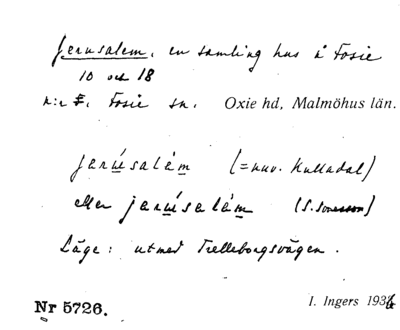 Jerusalem, en samling hus å Fosie
10 och 18
n:r Fosie sn. Oxie hd, Malmöhus län.
jarúsalè̀m (=nuv. Kulladal)
eller jarúsalè̀m (S.
Läge: utmed Trelleborgsvägen.
Nr 5726. I. Ingers 1936